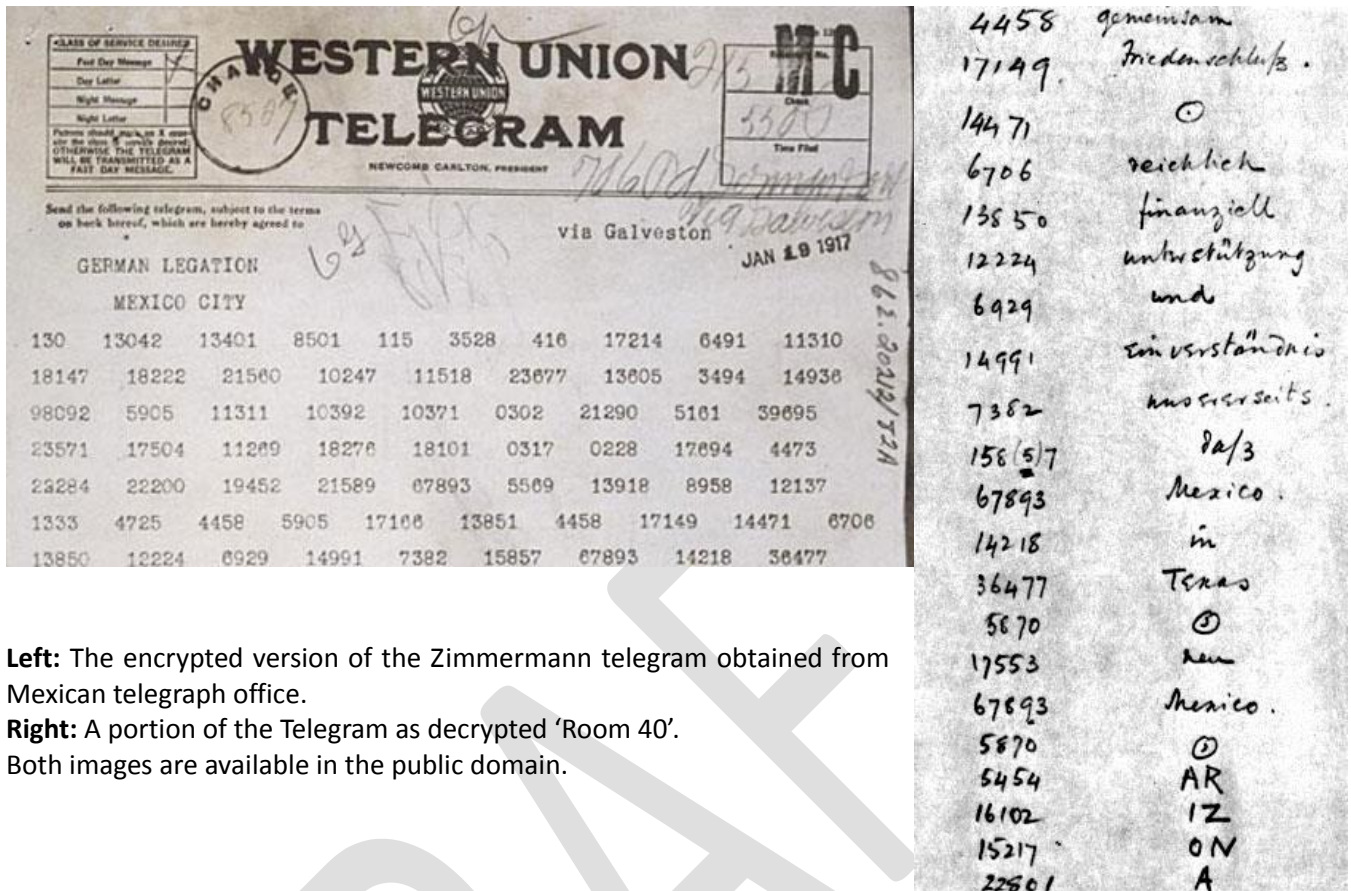 CLASS OF SERVICE DESIRED
Fast Day Message
Day Letter
Night Message
Night Letter
Patrons should mark an X oppo-
site the class of service desired;
OTHERWISE THE TELEGRAM
WILL BE TRANSMITTED AS A
FAST DAY MESSAGE.
CHARGE
WESTERN UNION
WESTERN UNION
TELEGRAM
NEWCOMB CARLTON, PRESIDENT
Check
Time Filed
Send the following telegram, subject to the terms
on back hereof, which are hereby agreed to
via Galveston
via Galveston
JAN 19 1917
GERMAN LEGATION
MEXICO CITY
862.20212/82A
130 13042 13401 8501 115 3528 416 17214 6491 11310
18147 18222 21560 10247 11518 23677 13605 3494 14936
98092 5905 11311 10392 10371 0302 21290 5161 39695
23571 17504 11269 18276 18101 0317 0228 17694 4473
23284 22200 19452 21589 67893 5569 13918 8958 12137
1333 4725 4458 5905 17166 13851 4458 17149 14471 6706
13850 12224 6929 14991 7382 15857 67893 14218 36477
4458 gemeinsam
17149. Friedenschluß.
14471 ⊙
6706 reichlich
13850 finanziell
12224 unterstützung
6929 und
14991 einverständnis
7382 unsererseits.
158(5)7 daß
67893 Mexico.
14218 in
36477 Texas
5870 ⊙
17553 neu
67893 Mexico.
5870 ⊙
5454 AR
16102 IZ
15217 ON
22801 A
Left: The encrypted version of the Zimmermann telegram obtained from
Mexican telegraph office.
Right: A portion of the Telegram as decrypted ‘Room 40’.
Both images are available in the public domain.